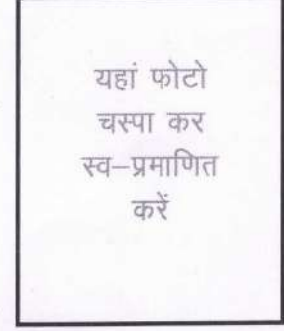 यहां फोटो
चस्पा कर
स्व–प्रमाणित
करें